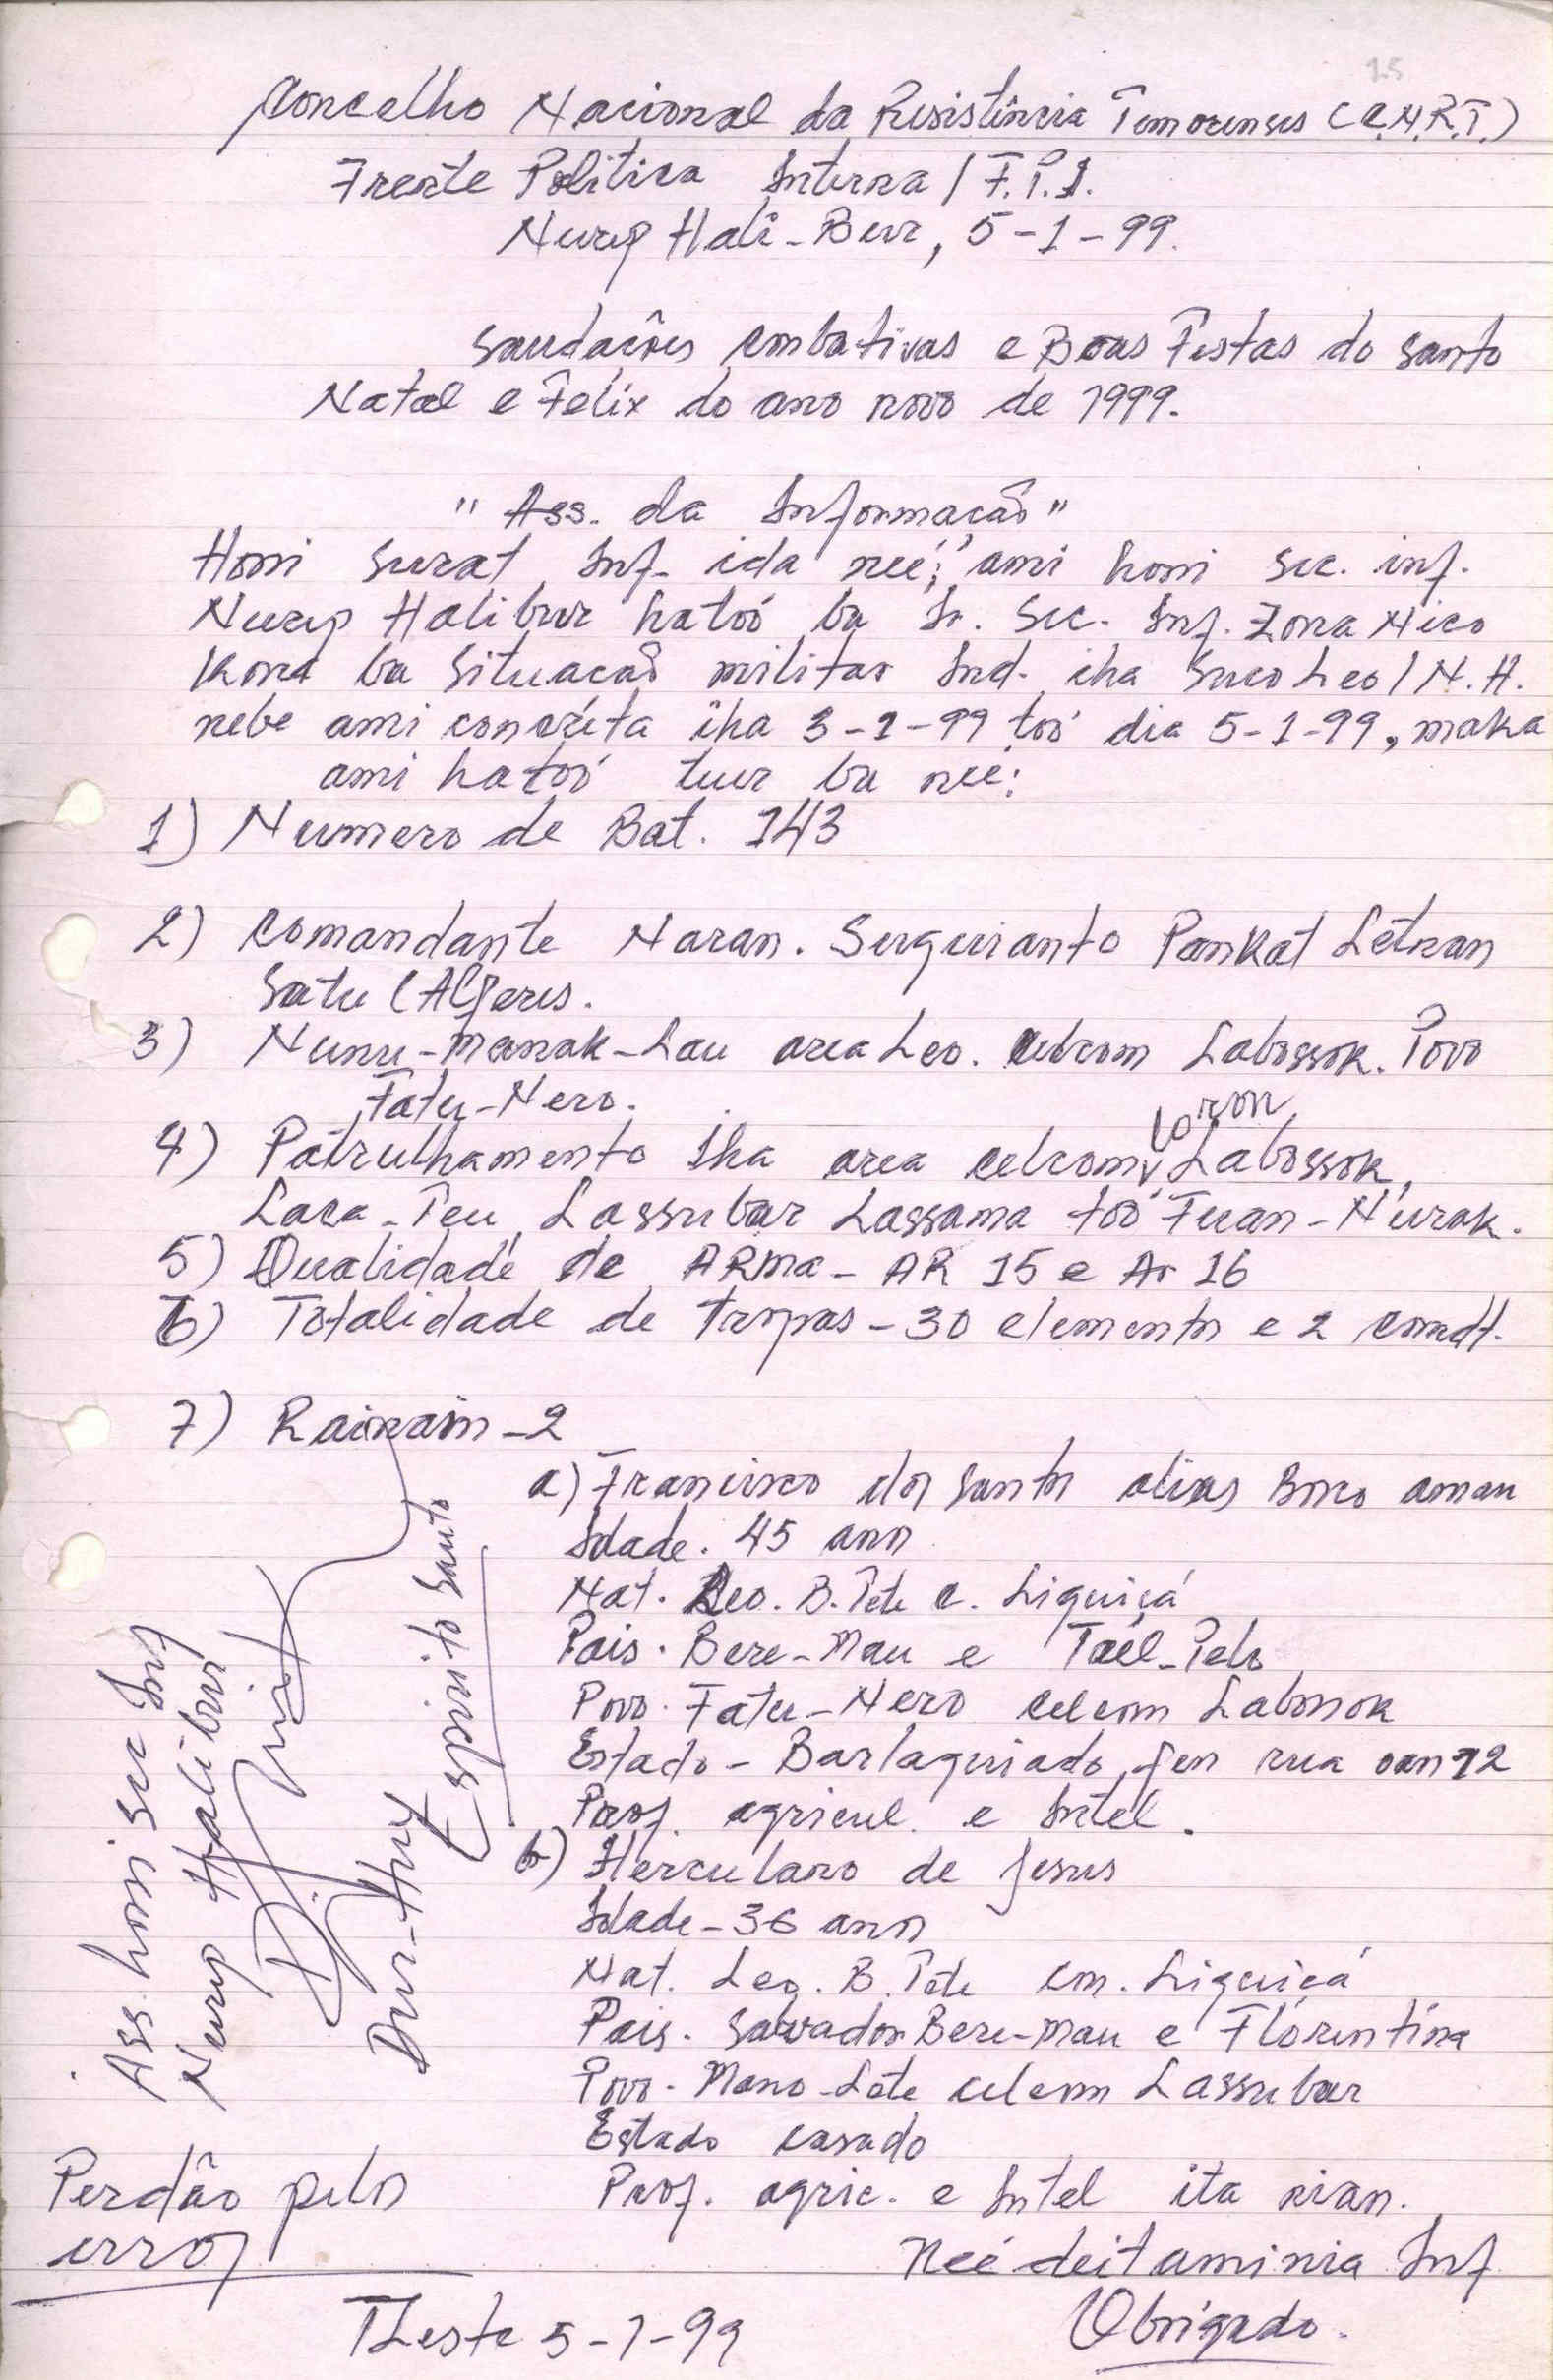 25
Concelho Nacional da Resistência Timorenses (C.N.R.T.)
Frente Politica Interna / F.P.I.
Nurep Hali-Bur, 5-1-99.
Saudações combativas e Boas Festas do Santo
Natal e Felix do ano novo de 1999.
" Ass. da Informacaõ"
Homi surat Inf. ida neé; ami homi sec. inf.
Nurep Halibur hatoó ba Sr. Sec. Inf. Zona Nico
Kona ba Situacaõ militar Ind. iha Suco Leo / N.H.
nebe ami concréta iha 3-1-99 toó dia 5-1-99, maka
ami hatoó tuir ba neé:
1) Numero de Bat. 143
2) Comandante Naran. Suguianto Pankat Letnan
Satu (Alferes.
3) Nunu-Manak-Lau area Leo. Celcom Labossok. Povo
Fatu-Nero.
loron
4) Patrulhamento Iha area celcom Labossok,
Laca-Teu, Lassubar Lassama toó Fuan-Nurak.
5) Qualidade de ARMA - AR 15 e Ar 16
6) Totalidade de tropas - 30 elementos e 2 comdt.
7) Rainain - 2
a) Francisco dos Santos alias Boco aman
Idade. 45 anos
Nat. Leo. B. Tete c. Liquiçá
Pais. Bere-Mau e Taél-Pelo
Povo. Fatu-Nero celcom Labossok
Estado - Barlaquiado, fen rua oan 12
Prof. agricul. e Intel.
b) Herculano de Jesus
Idade - 36 anos
Nat. Leo. B. Tete cm. Liquiçá
Pais. Savador Bere-Mau e Florentina
Povo. Mano-Lete celcom Lassubar
Estado casado
Prof. agric. e Intel ita nian.
Neé deit ami nia Inf
Obrigado.
Ass. homi sec Inf
Nurep Halibur
Dur-Hut
Espirito Santo
Perdão pelos
erros
TLeste 5-1-99